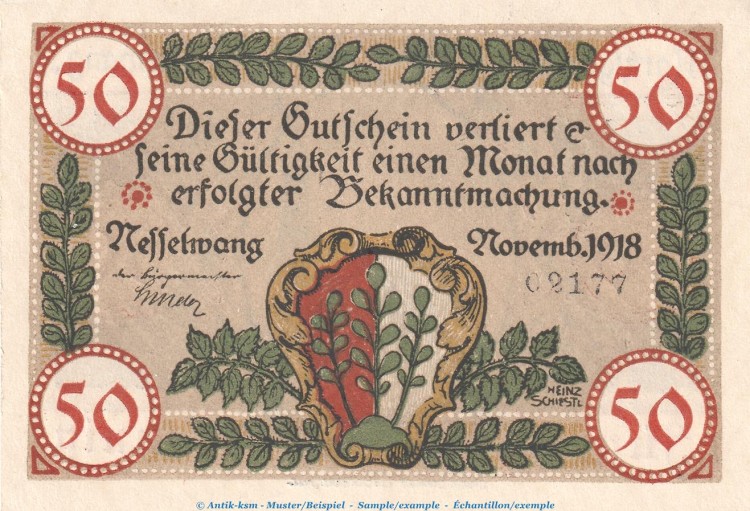 50 50
Dieser Gutschein verliert
seine Gültigkeit einen Monat nach
erfolgter Bekanntmachung.
Nesselwang Novemb. 1918
der Bürgermeister
02177
HEINZ
SCHIESTL
50 50
© Antik-ksm - Muster/Beispiel - Sample/example - Échantillon/exemple